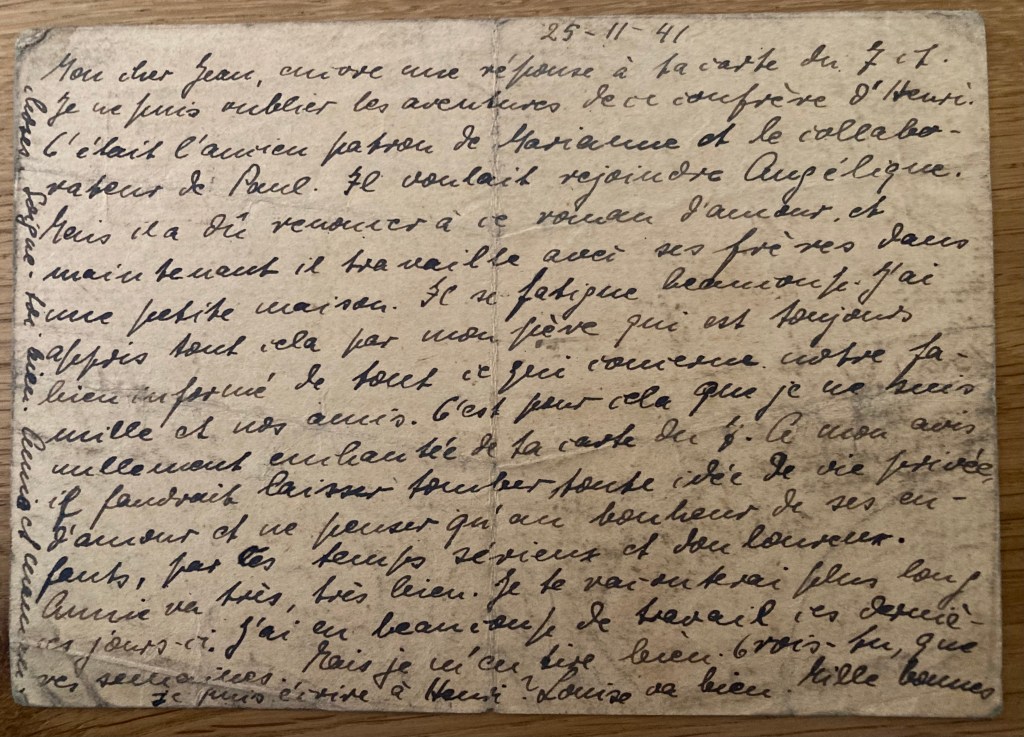 25-11-41
Mon cher Jean, encore une réponse à ta carte du 7 ct.
Je ne puis oublier les aventures de ce confrère d'Henri.
C'était l'ancien patron de Marianne et le collabo-
rateur de Paul. Il voulait rejoindre Angélique.
Mais il a dû renoncer à ce roman d'amour, et
maintenant il travaille avec ses frères dans
une petite maison. Il se fatigue beaucoup. J'ai
appris tout cela par mon père qui est toujours
bien informé de tout ce qui concerne notre fa-
mille et nos amis. C'est pour cela que je ne suis
nullement enchantée de ta carte du 7. A mon avis
il faudrait laisser tomber toute idée de vie privée,
d'amour et ne penser qu'au bonheur de ses en-
fants, par ces temps sérieux et douloureux.
Annie va très, très bien. Je te raconterai plus long
ces jours-ci. J'ai eu beaucoup de travail ces derniè-
res semaines. Mais je m'en tire bien. Crois-tu, que
je puis écrire à Henri? Louise va bien. Mille bonnes
choses. Soigne-toi bien. Annie et